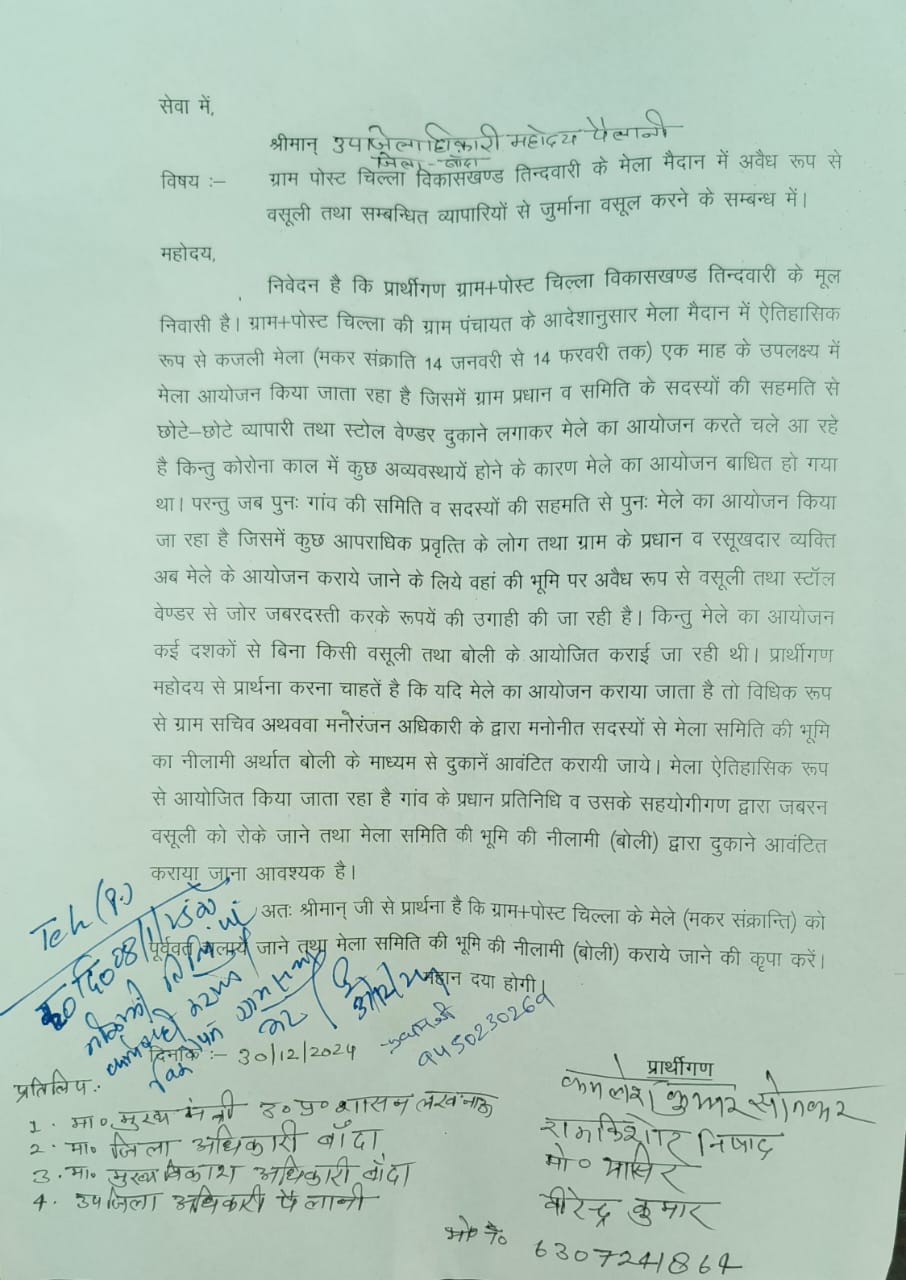 सेवा में,
श्रीमान् उपजिलाधिकारी महोदय पैलानी
जिला - बाँदा
विषय :– ग्राम पोस्ट चिल्ला विकासखण्ड तिन्दवारी के मेला मैदान में अवैध रूप से
वसूली तथा सम्बन्धित व्यापारियों से जुर्माना वसूल करने के सम्बन्ध में।
महोदय,
निवेदन है कि प्रार्थीगण ग्राम+पोस्ट चिल्ला विकासखण्ड तिन्दवारी के मूल
निवासी है। ग्राम+पोस्ट चिल्ला की ग्राम पंचायत के आदेशानुसार मेला मैदान में ऐतिहासिक
रूप से कजली मेला (मकर संक्राति 14 जनवरी से 14 फरवरी तक) एक माह के उपलक्ष्य में
मेला आयोजन किया जाता रहा है जिसमें ग्राम प्रधान व समिति के सदस्यों की सहमति से
छोटे–छोटे व्यापारी तथा स्टोल वेण्डर दुकाने लगाकर मेले का आयोजन करते चले आ रहे
है किन्तु कोरोना काल में कुछ अव्यवस्थायें होने के कारण मेले का आयोजन बाधित हो गया
था। परन्तु जब पुनः गांव की समिति व सदस्यों की सहमति से पुनः मेले का आयोजन किया
जा रहा है जिसमें कुछ आपराधिक प्रवृत्ति के लोग तथा ग्राम के प्रधान व रसूखदार व्यक्ति
अब मेले के आयोजन कराये जाने के लिये वहां की भूमि पर अवैध रूप से वसूली तथा स्टॉल
वेण्डर से जोर जबरदस्ती करके रूपयें की उगाही की जा रही है। किन्तु मेले का आयोजन
कई दशकों से बिना किसी वसूली तथा बोली के आयोजित कराई जा रही थी। प्रार्थीगण
महोदय से प्रार्थना करना चाहतें है कि यदि मेले का आयोजन कराया जाता है तो विधिक रूप
से ग्राम सचिव अथववा मनोरंजन अधिकारी के द्वारा मनोनीत सदस्यों से मेला समिति की भूमि
का नीलामी अर्थात बोली के माध्यम से दुकानें आवंटित करायी जाये। मेला ऐतिहासिक रूप
से आयोजित किया जाता रहा है गांव के प्रधान प्रतिनिधि व उसके सहयोगीगण द्वारा जबरन
वसूली को रोके जाने तथा मेला समिति की भूमि की नीलामी (बोली) द्वारा दुकाने आवंटित
कराया जाना आवश्यक है।
अतः श्रीमान् जी से प्रार्थना है कि ग्राम+पोस्ट चिल्ला के मेले (मकर संक्रान्ति) को
पूर्ववत् जाने तथा मेला समिति की भूमि की नीलामी (बोली) कराये जाने की कृपा करें।
महान दया होगी।
Teh (P.)
9450230269
दिनांक :– 30/12/2024
प्रतिलिप :-
1. मा० मुख्य मंत्री उ० प्र० शासन लखनऊ
2. मा० जिला अधिकारी बाँदा
3. मा० मुख्य विकाश अधिकारी बाँदा
4. उपजिला अधिकारी पैलानी
प्रार्थीगण
कमलेश कुमार सोनकर
रामकिशोर निषाद
मो०
वीरेन्द्र कुमार
मो० नं० 6307241864